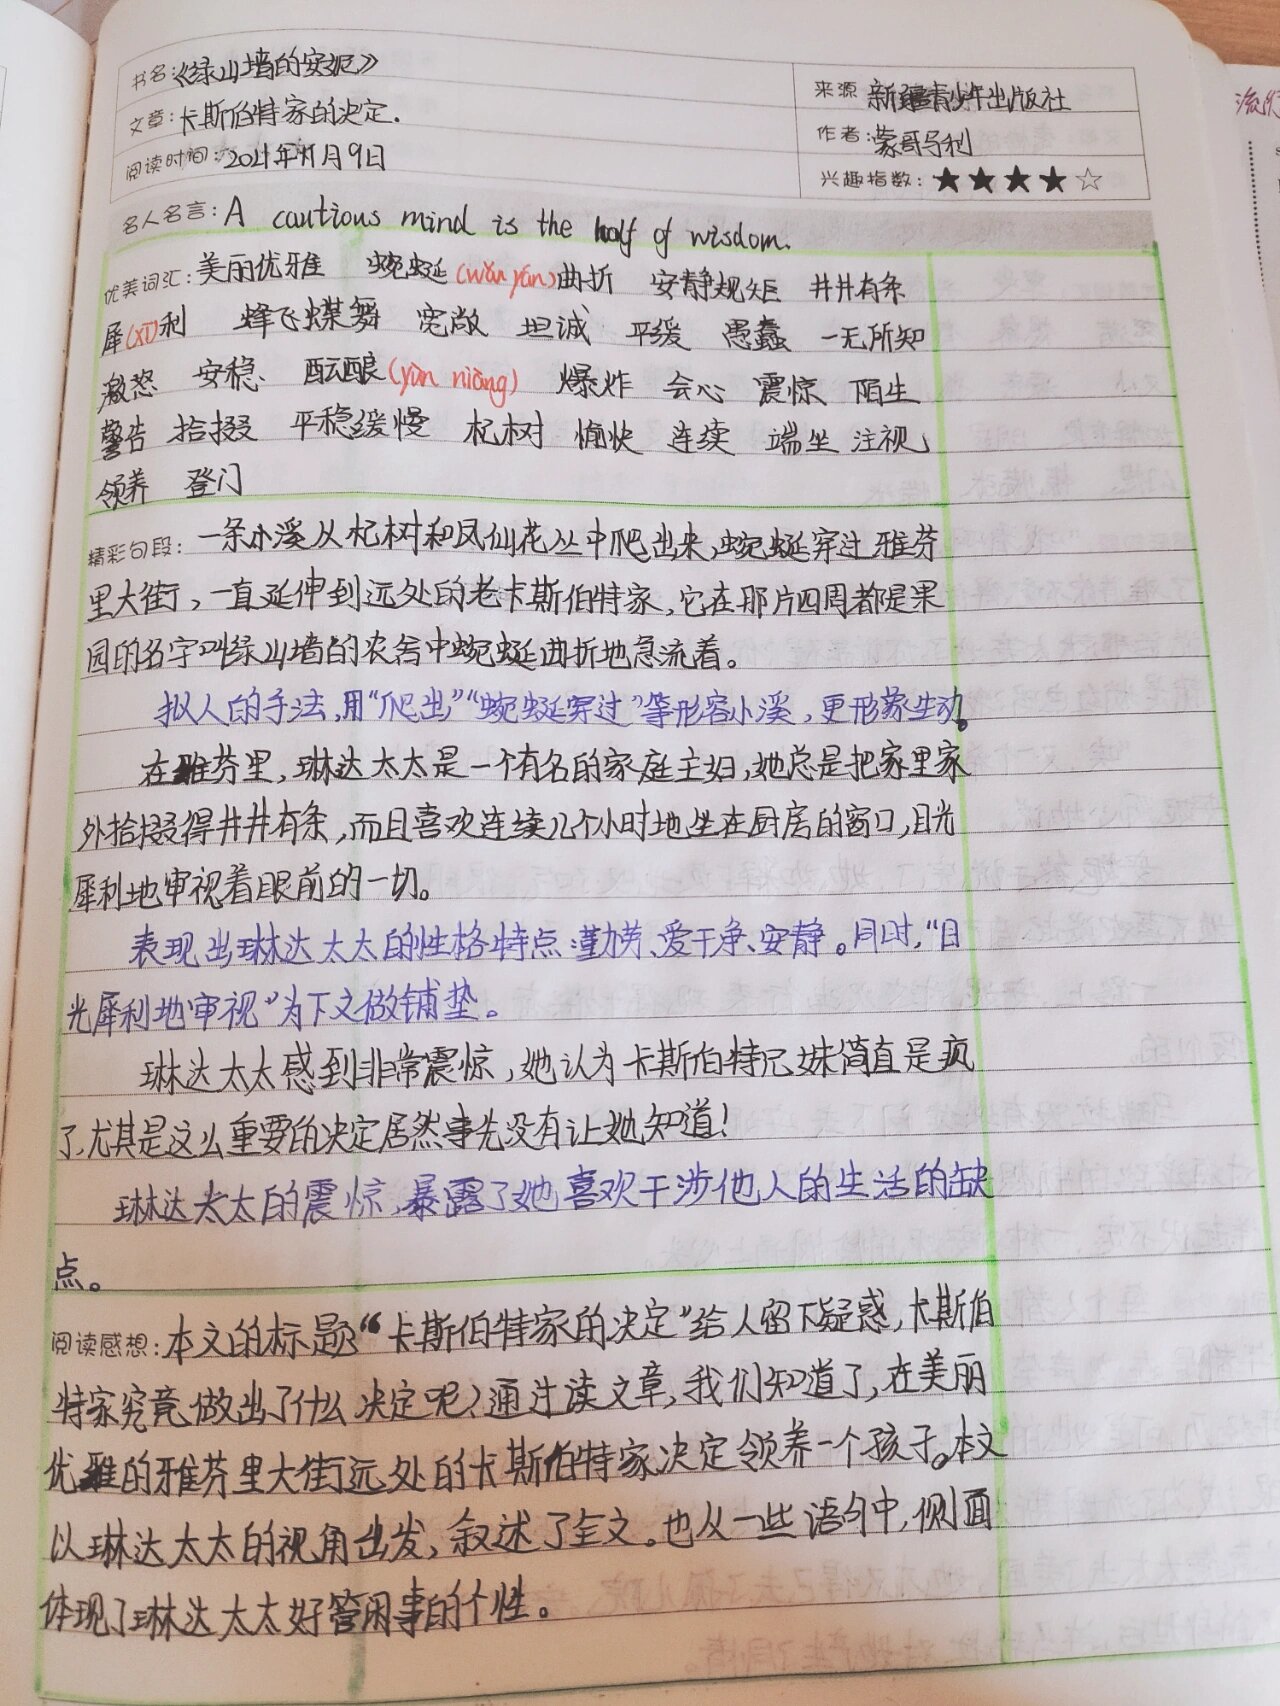 书名:《绿山墙的安妮》
来源 新疆青少年出版社
文章:卡斯伯特家的决定.
作者:蒙哥马利
阅读时间:2021年11月9日
兴趣指数:★★★★☆
名人名言:A cautious mind is the half of wisdom.
优美词汇:美丽优雅 蜿蜒(wān yán)曲折 安静规矩 井井有条
犀(xī)利 蜂飞蝶舞 宽敞 坦诚 平缓 愚蠢 一无所知
激怒 安稳 酝酿(yùn niàng) 爆炸 会心 震惊 陌生
警告 拾掇 平稳缓慢 杞树 愉快 连续 端坐 注视
领养 登门
精彩句段:一条小溪从杞树和凤仙花丛中爬出来,蜿蜒穿过雅芬
里大街,一直延伸到远处的老卡斯伯特家,它在那片四周都是果
园的名字叫绿山墙的农舍中蜿蜒曲折地急流着。
拟人的手法,用“爬出”“蜿蜒穿过”等形容小溪,更形象生动。
在雅芬里,琳达太太是一个有名的家庭主妇,她总是把家里家
外拾掇得井井有条,而且喜欢连续几个小时地坐在厨房的窗口,目光
犀利地审视着眼前的一切。
表现出琳达太太的性格特点:勤劳、爱干净、安静。同时,“目
光犀利地审视”为下文做铺垫。
琳达太太感到非常震惊,她认为卡斯伯特兄妹简直是疯
了,尤其是这么重要的决定居然事先没有让她知道!
琳达太太的震惊,暴露了她喜欢干涉他人的生活的缺
点。
阅读感想:本文的标题“卡斯伯特家的决定”给人留下疑惑,卡斯伯
特家究竟做出了什么决定呢?通过读文章,我们知道了,在美丽
优雅的雅芬里大街远处的卡斯伯特家决定领养一个孩子。本文
以琳达太太的视角出发,叙述了全文。也从一些语句中,侧面
体现了琳达太太好管闲事的个性。